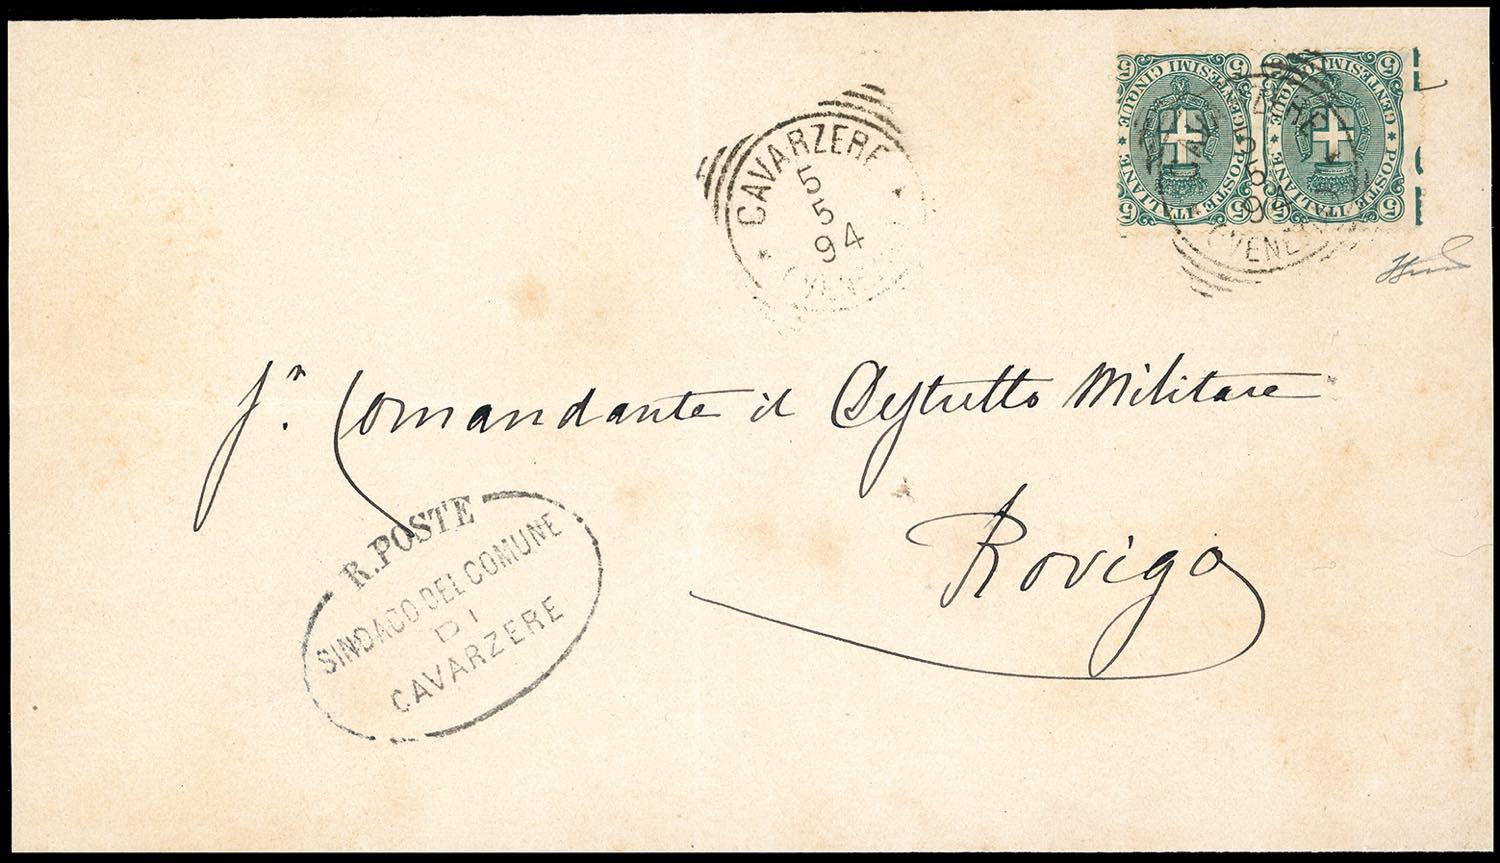 CAVARZERE
5
5
94
(VENEZIA)
5 CENTESIMI CINQUE 5
5 POSTE ITALIANE 5
5 CENTESIMI CINQUE 5
5 POSTE ITALIANE 5
CAVARZERE
5
5
94
(VENEZIA)
Sr. Comandante il Destretto Militare
Rovigo
R. POSTE
SINDACO DEL COMUNE
DI
CAVARZERE